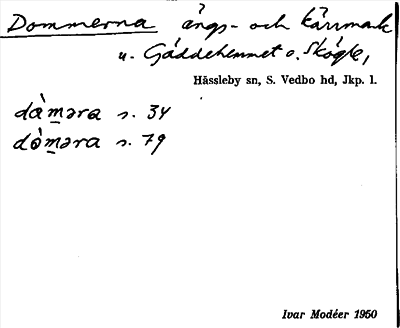 Dommerna ängs- och kärrmark
u. Gäddehemmet o. Skögle,
Hässleby sn, S. Vedbo hd, Jkp. l.
dàməra s. 34
dòməra s. 79
Ivar Modéer 1950